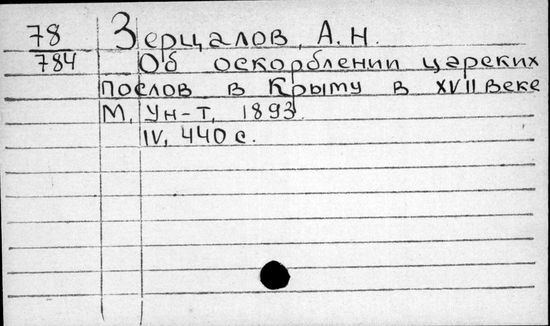 78
784
Зерцалов, А. Н.
Об оскорблении царских
послов в Крыму в XVII веке
М, Ун-т, 1893
IV, 440 с.